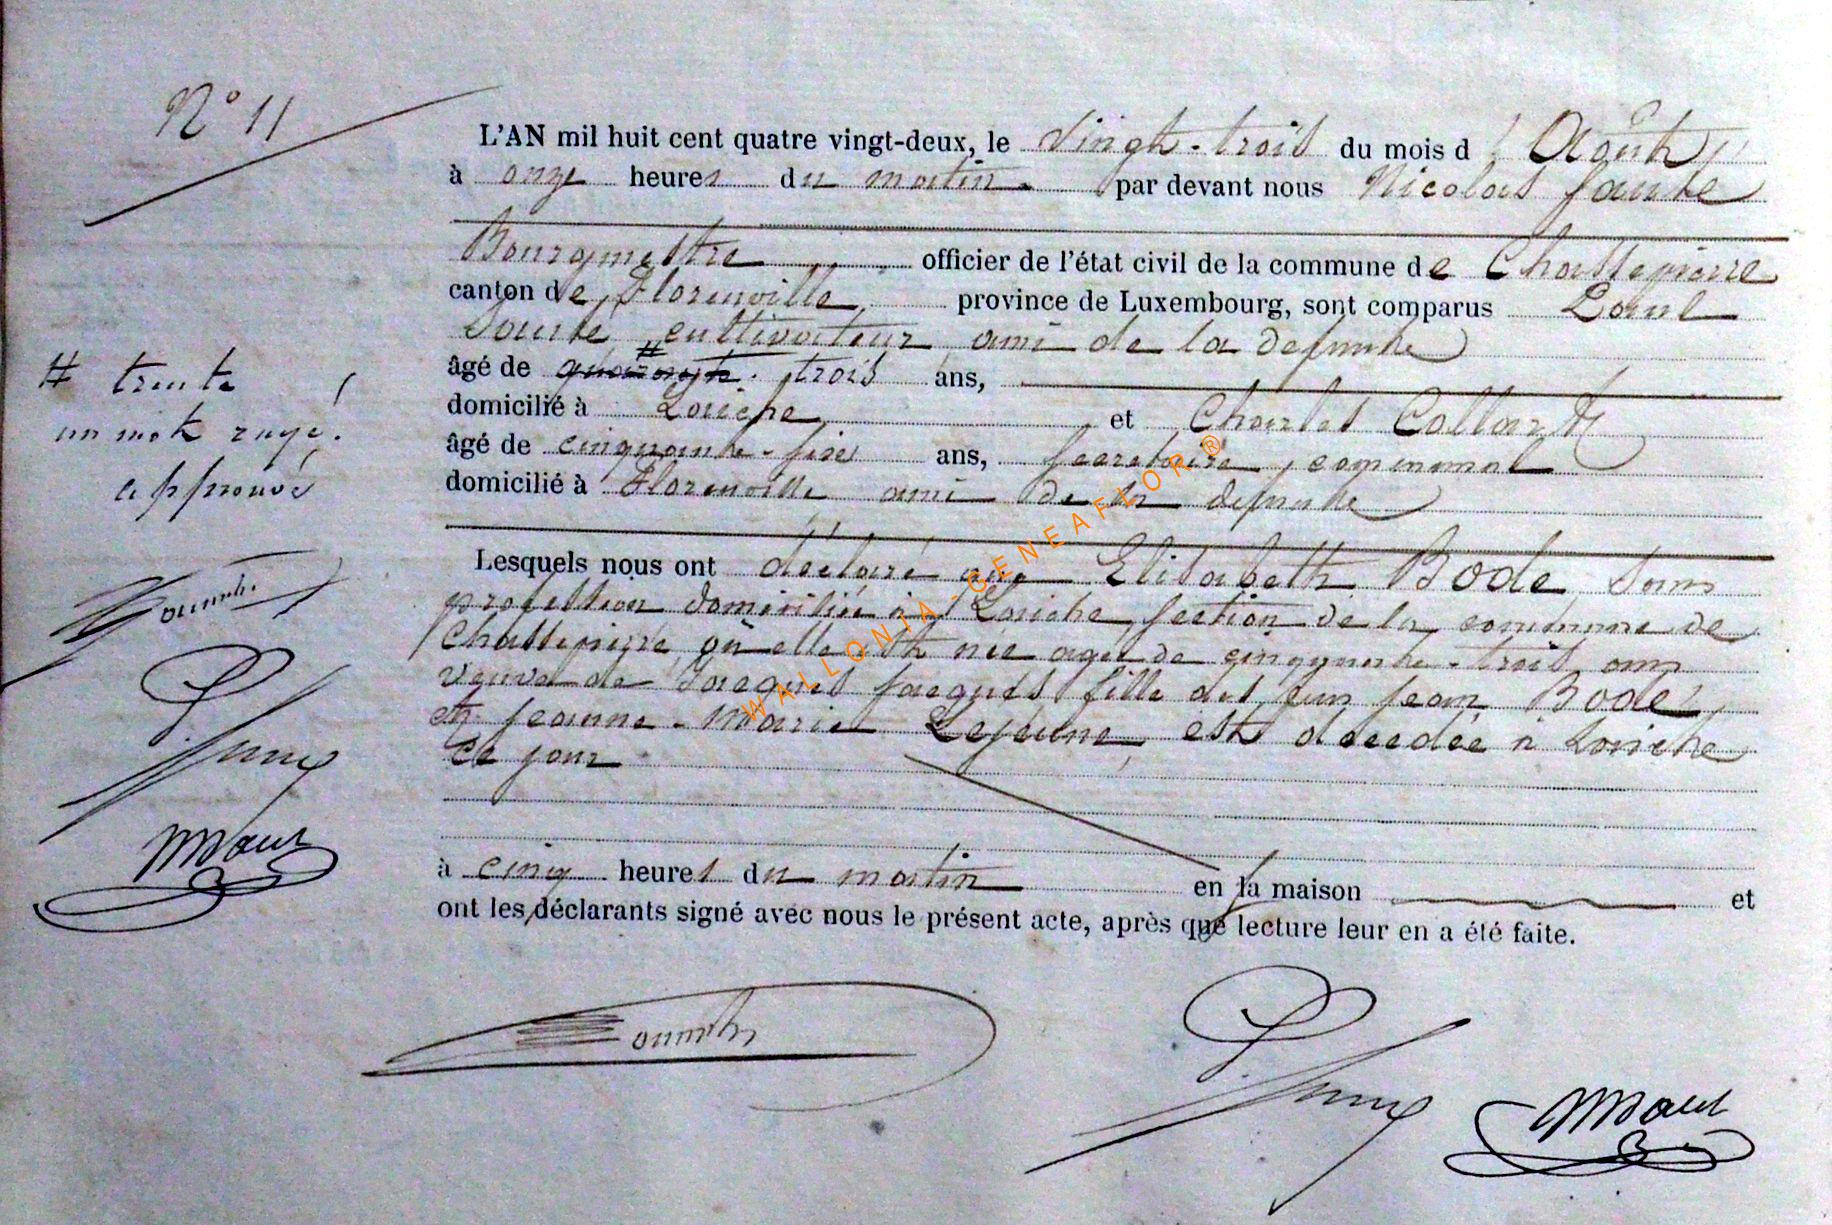 N° 11
L'AN mil huit cent quatre vingt-deux, le Vingt-trois du mois d' Août
à onze heures du matin par devant nous Nicolas
Bourgmestre officier de l'état civil de la commune de Chassepierre
canton de Florenville province de Luxembourg, sont comparus
cultivateur ami de la defunte
âgé de quarante trois ans,
domicilié à Laiche et Charles Collar
âgé de cinquante-six ans, secretaire communal
domicilié à Florenville ami de la defunte
# trente
un mot rayé.
approuvé
Lesquels nous ont déclaré que Elisabeth Bode sans
profession domiciliée à Laiche section de la commune de
Chassepierre où elle est née agée de cinquante-trois ans
veuve de Jacques Jacques fille des feus Jean Bode
et Jeanne-Marie Lejeune, est decedée à Laiche
ce jour
à cinq heures du matin en sa maison et
ont les déclarants signé avec nous le présent acte, après que lecture leur en a été faite.
WALLONIA-GENEAFLOR®